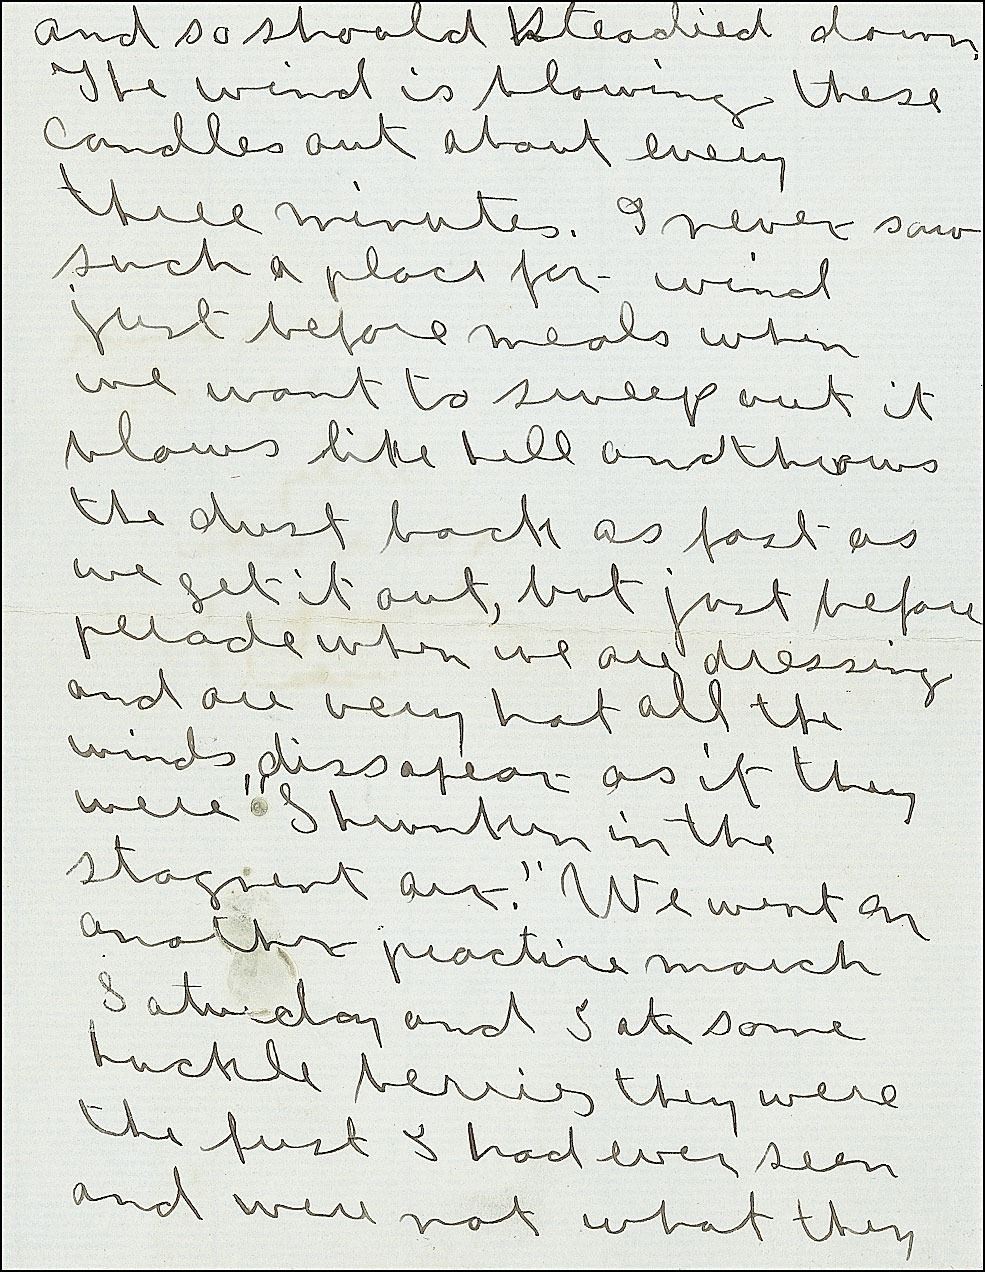 and so should steadied down.
The wind is blowing these
candles out about every
three minutes. I never saw
such a place for wind
just before meals when
we want to sweep out it
blows like hell and throws
the dust back as fast as
we get it out, but just before
perade when we are dressing
and are very hot all the
winds, dissapear as if they
were "Shrunken in the
stagnent air." We went on
another practice march
Saturday and I ate some
huckle berries they were
the first I had ever seen
and were not what they